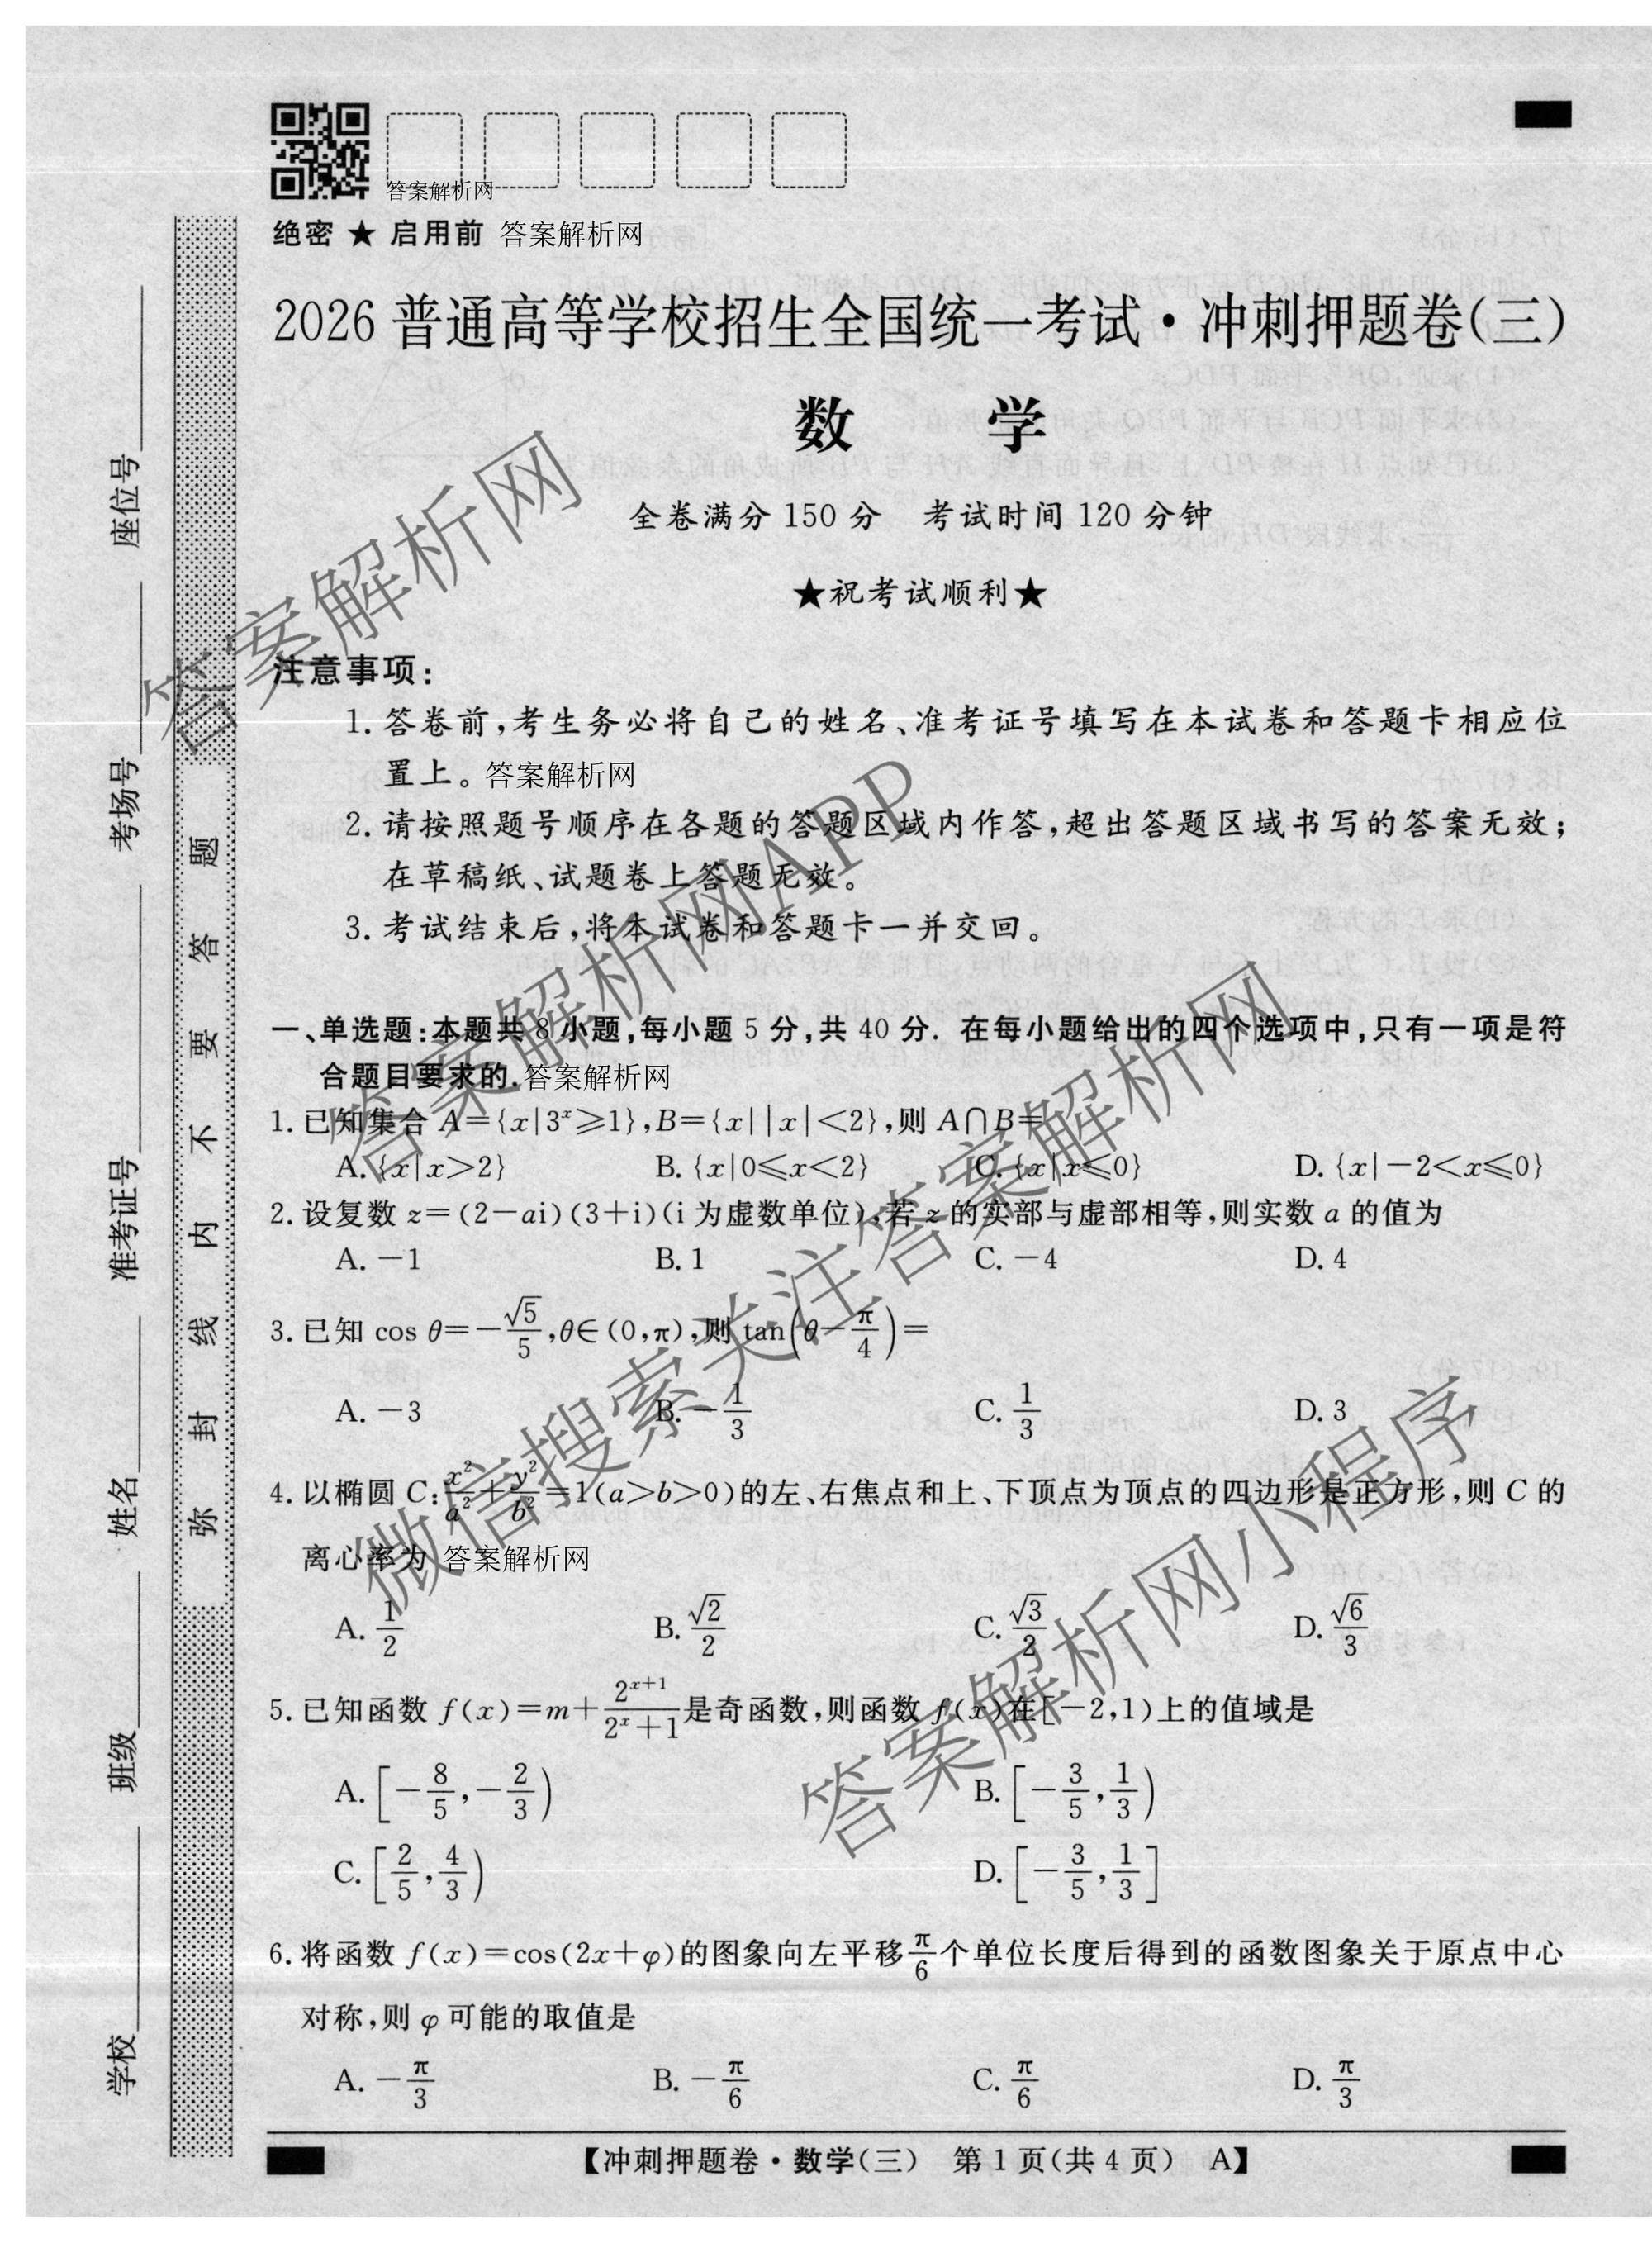 答案解析网
绝密 ★ 启用前 答案解析网
2026 普通高等学校招生全国统一考试·冲刺押题卷(三)
数 学
全卷满分 150 分 考试时间 120 分钟
★祝考试顺利★
注意事项:
1. 答卷前,考生务必将自己的姓名、准考证号填写在本试卷和答题卡相应位
置上。答案解析网
2. 请按照题号顺序在各题的答题区域内作答,超出答题区域书写的答案无效;
在草稿纸、试题卷上答题无效。
3. 考试结束后,将本试卷和答题卡一并交回。
一、单选题:本题共 8 小题,每小题 5 分,共 40 分. 在每小题给出的四个选项中,只有一项是符
合题目要求的.答案解析网
1. 已知集合 A={x|3^x≥1},B={x||x|<2},则 A∩B=
A. {x|x>2} B. {x|0≤x<2} C. {x|x≤0} D. {x|-2<x≤0}
2. 设复数 z=(2-ai)(3+i)(i 为虚数单位),若 z 的实部与虚部相等,则实数 a 的值为
A. -1 B. 1 C. -4 D. 4
3. 已知 cos θ=-√5/5,θ∈(0,π),则 tan(θ-π/4)=
A. -3 B. -1/3 C. 1/3 D. 3
4. 以椭圆 C:x²/a²+y²/b²=1(a>b>0)的左、右焦点和上、下顶点为顶点的四边形是正方形,则 C 的
离心率为 答案解析网
A. 1/2 B. √2/2 C. √3/2 D. √6/3
5. 已知函数 f(x)=m+2^(x+1)/(2^x+1)是奇函数,则函数 f(x)在[-2,1)上的值域是
A. [-8/5,-2/3) B. [-3/5,1/3)
C. [2/5,4/3) D. [-3/5,1/3]
6. 将函数 f(x)=cos(2x+φ)的图象向左平移π/6个单位长度后得到的函数图象关于原点中心
对称,则 φ 可能的取值是
A. -π/3 B. -π/6 C. π/6 D. π/3
【冲刺押题卷·数学(三) 第 1 页(共 4 页) A】
学校 班级 姓名 准考证号 考场号 座位号
弥 封 线 内 不 要 答 题
答案解析网
答案解析网APP
微信搜索关注答案解析网
答案解析网小程序